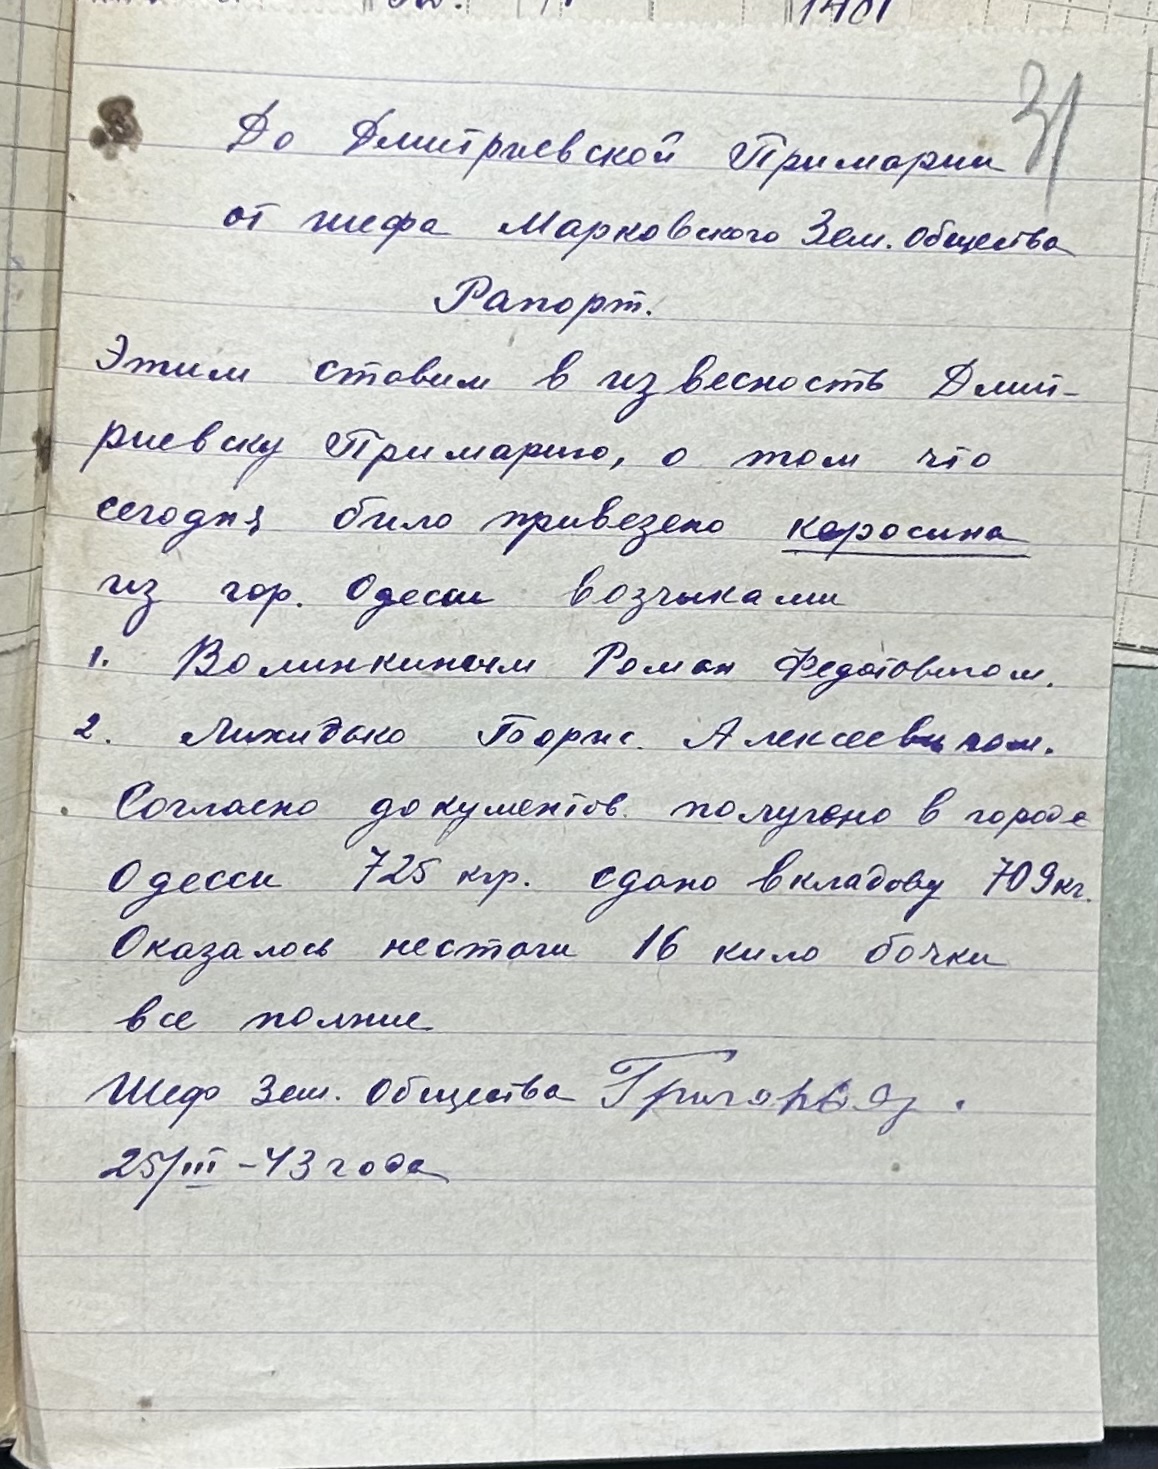 31
До Дмитриевской Примарии
от шефа Марковского Зем. Общества
Рапорт.
Этим ставим в извесность Дмит-
риевску Примарию, о том что
сегодня было привезено каросина
из гор. Одесы возчыками
1. Волинкиным Роман Федотовичом.
2. Борис. Алексеевичом.
Согласно документов. получено в городе
Одесси 725 кгр. сдано в кладову 709 кг.
Оказалось нестачи 16 кило бочки
все полние
Шеф Зем. Общества
25/III -43 года